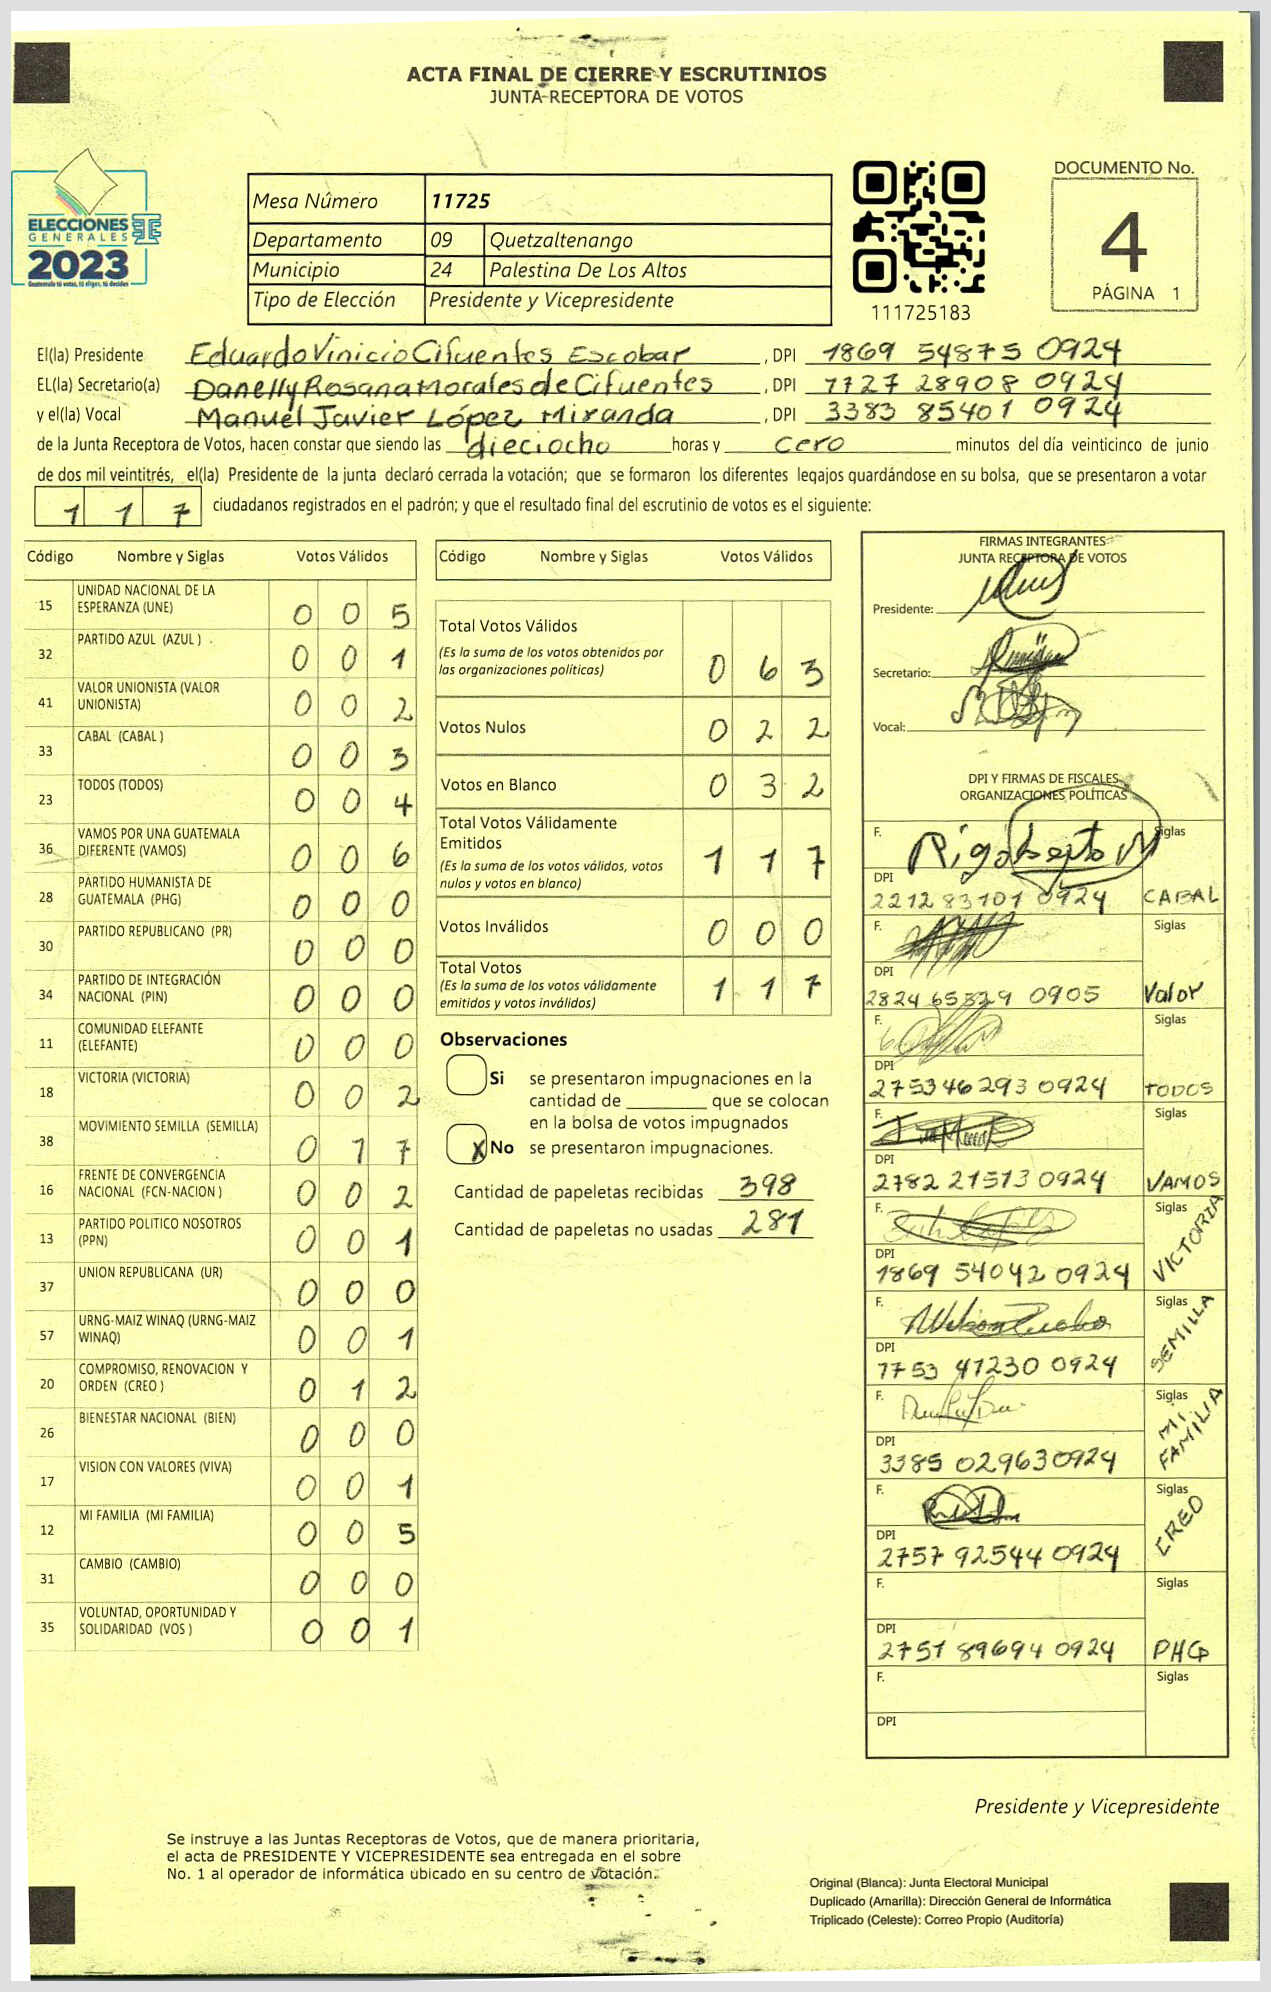 ACTA FINAL DE CIERRE Y ESCRUTINIOS
JUNTA RECEPTORA DE VOTOS
ELECCIONES
GENERALES
2023
Guatemala tú votas, tú eliges, tú decides
Mesa Número 11725
Departamento 09 Quetzaltenango
Municipio 24 Palestina De Los Altos
Tipo de Elección Presidente y Vicepresidente
111725183
DOCUMENTO No.
4
PÁGINA 1
El(la) Presidente Eduardo Vinicio Cifuentes Escobar , DPI 1869 54875 0924
EL(la) Secretario(a) Danelly Rosana Morales de Cifuentes , DPI 1727 28908 0924
y el(la) Vocal Manuel Javier López Miranda , DPI 3383 85401 0924
de la Junta Receptora de Votos, hacen constar que siendo las dieciocho horas y cero minutos del día veinticinco de junio
de dos mil veintitrés, el(la) Presidente de la junta declaró cerrada la votación; que se formaron los diferentes legajos guardándose en su bolsa, que se presentaron a votar
117 ciudadanos registrados en el padrón; y que el resultado final del escrutinio de votos es el siguiente:
Código Nombre y Siglas Votos Válidos
15 UNIDAD NACIONAL DE LA ESPERANZA (UNE) 0 0 5
32 PARTIDO AZUL (AZUL ) 0 0 1
41 VALOR UNIONISTA (VALOR UNIONISTA) 0 0 2
33 CABAL (CABAL ) 0 0 3
23 TODOS (TODOS) 0 0 4
36 VAMOS POR UNA GUATEMALA DIFERENTE (VAMOS) 0 0 6
28 PARTIDO HUMANISTA DE GUATEMALA (PHG) 0 0 0
30 PARTIDO REPUBLICANO (PR) 0 0 0
34 PARTIDO DE INTEGRACIÓN NACIONAL (PIN) 0 0 0
11 COMUNIDAD ELEFANTE (ELEFANTE) 0 0 0
18 VICTORIA (VICTORIA) 0 0 2
38 MOVIMIENTO SEMILLA (SEMILLA) 0 1 7
16 FRENTE DE CONVERGENCIA NACIONAL (FCN-NACION ) 0 0 2
13 PARTIDO POLITICO NOSOTROS (PPN) 0 0 1
37 UNION REPUBLICANA (UR) 0 0 0
57 URNG-MAIZ WINAQ (URNG-MAIZ WINAQ) 0 0 1
20 COMPROMISO, RENOVACION Y ORDEN (CREO ) 0 1 2
26 BIENESTAR NACIONAL (BIEN) 0 0 0
17 VISION CON VALORES (VIVA) 0 0 1
12 MI FAMILIA (MI FAMILIA) 0 0 5
31 CAMBIO (CAMBIO) 0 0 0
35 VOLUNTAD, OPORTUNIDAD Y SOLIDARIDAD (VOS ) 0 0 1
Código Nombre y Siglas Votos Válidos
Total Votos Válidos 0 6 3
(Es la suma de los votos obtenidos por
las organizaciones políticas)
Votos Nulos 0 2 2
Votos en Blanco 0 3 2
Total Votos Válidamente
Emitidos 1 1 7
(Es la suma de los votos válidos, votos
nulos y votos en blanco)
Votos Inválidos 0 0 0
Total Votos 1 1 7
(Es la suma de los votos válidamente
emitidos y votos inválidos)
Observaciones
Si se presentaron impugnaciones en la
cantidad de ________ que se colocan
en la bolsa de votos impugnados
X No se presentaron impugnaciones.
Cantidad de papeletas recibidas 398
Cantidad de papeletas no usadas 281
FIRMAS INTEGRANTES
JUNTA RECEPTORA DE VOTOS
Presidente:
Secretario:
Vocal:
DPI Y FIRMAS DE FISCALES
ORGANIZACIONES POLÍTICAS
F. Rigoberto M Siglas
DPI 2212 83101 0924 CABAL
F. Siglas
DPI 2824 65329 0905 Valor
F. Siglas
DPI 2753 46293 0924 TODOS
F. Siglas
DPI 2782 21513 0924 VAMOS
F. Siglas
DPI 1869 54042 0924 VICTORIA
F. Siglas
DPI 1753 41230 0924 SEMILLA
F. Siglas
DPI 3385 02963 0924 MI FAMILIA
F. Siglas
DPI 2757 92544 0924 CREO
F. Siglas
DPI 2751 89694 0924 PHG
F. Siglas
DPI
Presidente y Vicepresidente
Se instruye a las Juntas Receptoras de Votos, que de manera prioritaria,
el acta de PRESIDENTE Y VICEPRESIDENTE sea entregada en el sobre
No. 1 al operador de informática ubicado en su centro de votación.
Original (Blanca): Junta Electoral Municipal
Duplicado (Amarilla): Dirección General de Informática
Triplicado (Celeste): Correo Propio (Auditoría)